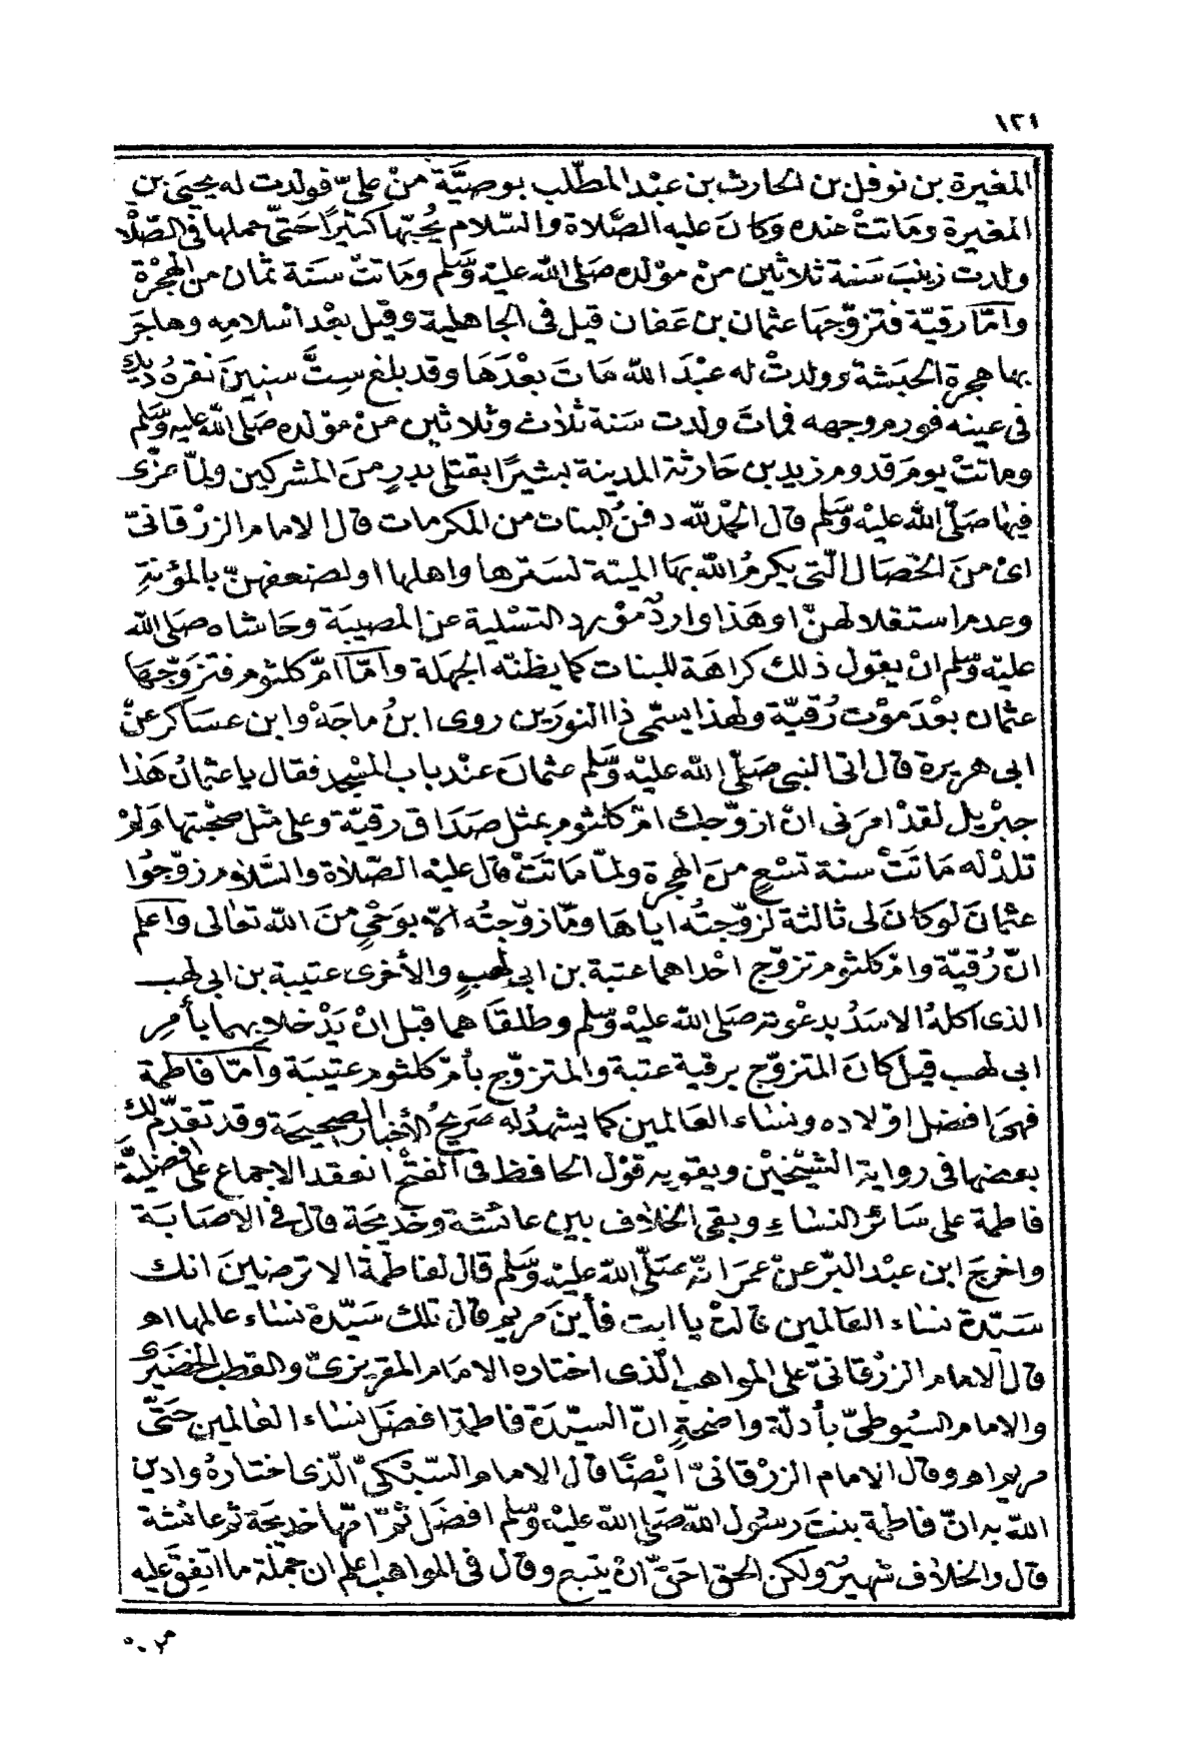 ١٢١
المغيرة بن نوفل بن الحارث بن عبد المطّلب بوصيَّة منْ علىّ فولدت له يحيىَ بن
المغيرة ومَاتتْ عنده وَكانَ عليه الصَّلاة والسّلام يُحبّها كثيرًا حَتىّ حملها فى الصّلاة
ولدت زينبَ سَنة ثلاثين منْ موْلده صَلى الله عليْه وَسَّلم ومَاتتْ سَنَة ثمان من الهجْرة
وَامّا رقيّة فتزوّجهَا عثمان بن عَفان قيل فى الجَاهلية وقيل بعْد اسْلامِه وهاجَر
بها هجرة الحبَشة وولدتْ له عبْدَ الله مَاتَ بعْدَهَا وقد بلغ سِتَّ سِنِينَ نقرهُ دِيك
فى عينه فورم وجهه فماتَ ولدت سَنة ثلاث وثلاثين منْ موْلده صَلى الله عليه وسَّلم
وماتتْ يومَ قدوم زيد بن حَارثة المدينة بشيرًا بقتلى بدرٍ منَ المشركين ولمّا عزّى
فيها صَلّى الله عليْه وَسَّلم قال الحمْد لله دفنُ البنات من المكرمات قال الامام الزرْقانىّ
اىْ منَ الخصَال الّتى يكرمُ الله بهَا الميتة لسَترها واهلها او لضعفهنّ بالمؤنةِ
وعدم استقلالهنّ او هَذا واردٌ موْرد التسْلية عن المصيبَة وحَاشاه صَلى الله
عليْه وَسّلم انْ يقول ذلك كراهَة للبنات كما يظنّه الجهَلة وَامّا امّ كلثوم فتزَوّجهَا
عثمان بعْدَ موْت رُقيّة ولهذا يسمّى ذا النورَين روى ابنُ ماجَهْ وابن عسَاكر عنْ
ابى هريرة قال اتى النبى صَلّى الله عليْه وَسَّلم عثمانَ عنْد باب المسْجد فقال يا عثمانُ هَذا
جبْريل لقدْ امرَنى انْ ازوّجك امّ كلثوم بمثل صَدَاق رقيّة وعلى مثل صحْبتها وَلمْ
تلدْ له مَاتَتْ سنة تسْعٍ منَ الهجرة ولمّا مَاتتْ قال عليْه الصّلاة والسَّلام زوّجُوا
عثمانَ لوْ كانَ لى ثالثة لزوّجتُه ايّاهَا ومَا زوّجتُه الّا بوَحْىٍ منَ الله تعَالى وَاعلم
انّ رُقيّة وامّ كلثوم تزوّج احْداهما عتبة بن ابى لهبٍ والأخرى عتيبة بن ابى لهب
الذى اكلهُ الاسَدُ بدعْوته صَلى الله عليْه وَسَّلم وطلقَا هما قبل انْ يَدْخلا بهما بأمرِ
ابى لهب قيل كانَ المتزوّج برقية عتبة والمتزوّج بأمّ كلثوم عتيبَة وَامّا فاطمة
فهىَ افضل اوْلاده ونسَاء العَالمين كما يشهدُ له صَريحُ الأخبار الصحيحَة وقد تقدّم لك
بعضها فى رواية الشيْخيْن ويقويه قوْل الحافظ فى الفتْح انعقد الاجماع على افضليَّة
فاطمة على سَائر النسَاءِ وبقى الخلاف بين عائشة وخديجَة قال فى الاصَابَة
واخرجَ ابن عبْد البرّ عنْ عمرَ انّه صَلّى الله عليْه وَسّلم قال لفاطمَة الا ترضيْنَ انك
سَيّدة نسَاء العَالمين قالتْ يا ابت فأينَ مريم قال تلك سَيّدة نسَاء عالمها اهـ
قال الامام الزرْقانىّ على المواهب الّذى اختاره الامَام المقريزىّ والقطب الخضَيْرى
والامام السيُوطىّ بأدلّة واضحَةٍ انّ السيّدَة فاطمة افضَل نسَاء العَالمين حَتىّ
مريم اهـ وقال الامام الزرْقانىّ ايْضًا قال الامام السّبْكىّ الّذى اختارهُ وادين
الله به انّ فاطمة بنتَ رسُول الله صَلى الله عليْه وَسّلم افضَل ثمّ امّها خديجَة ثم عائشة
قال والخلاف شهيرٌ ولكن الحق احَقّ انْ يتبع وقال فى المواهب اعلم ان جمْلة ما اتفِقَ عليه